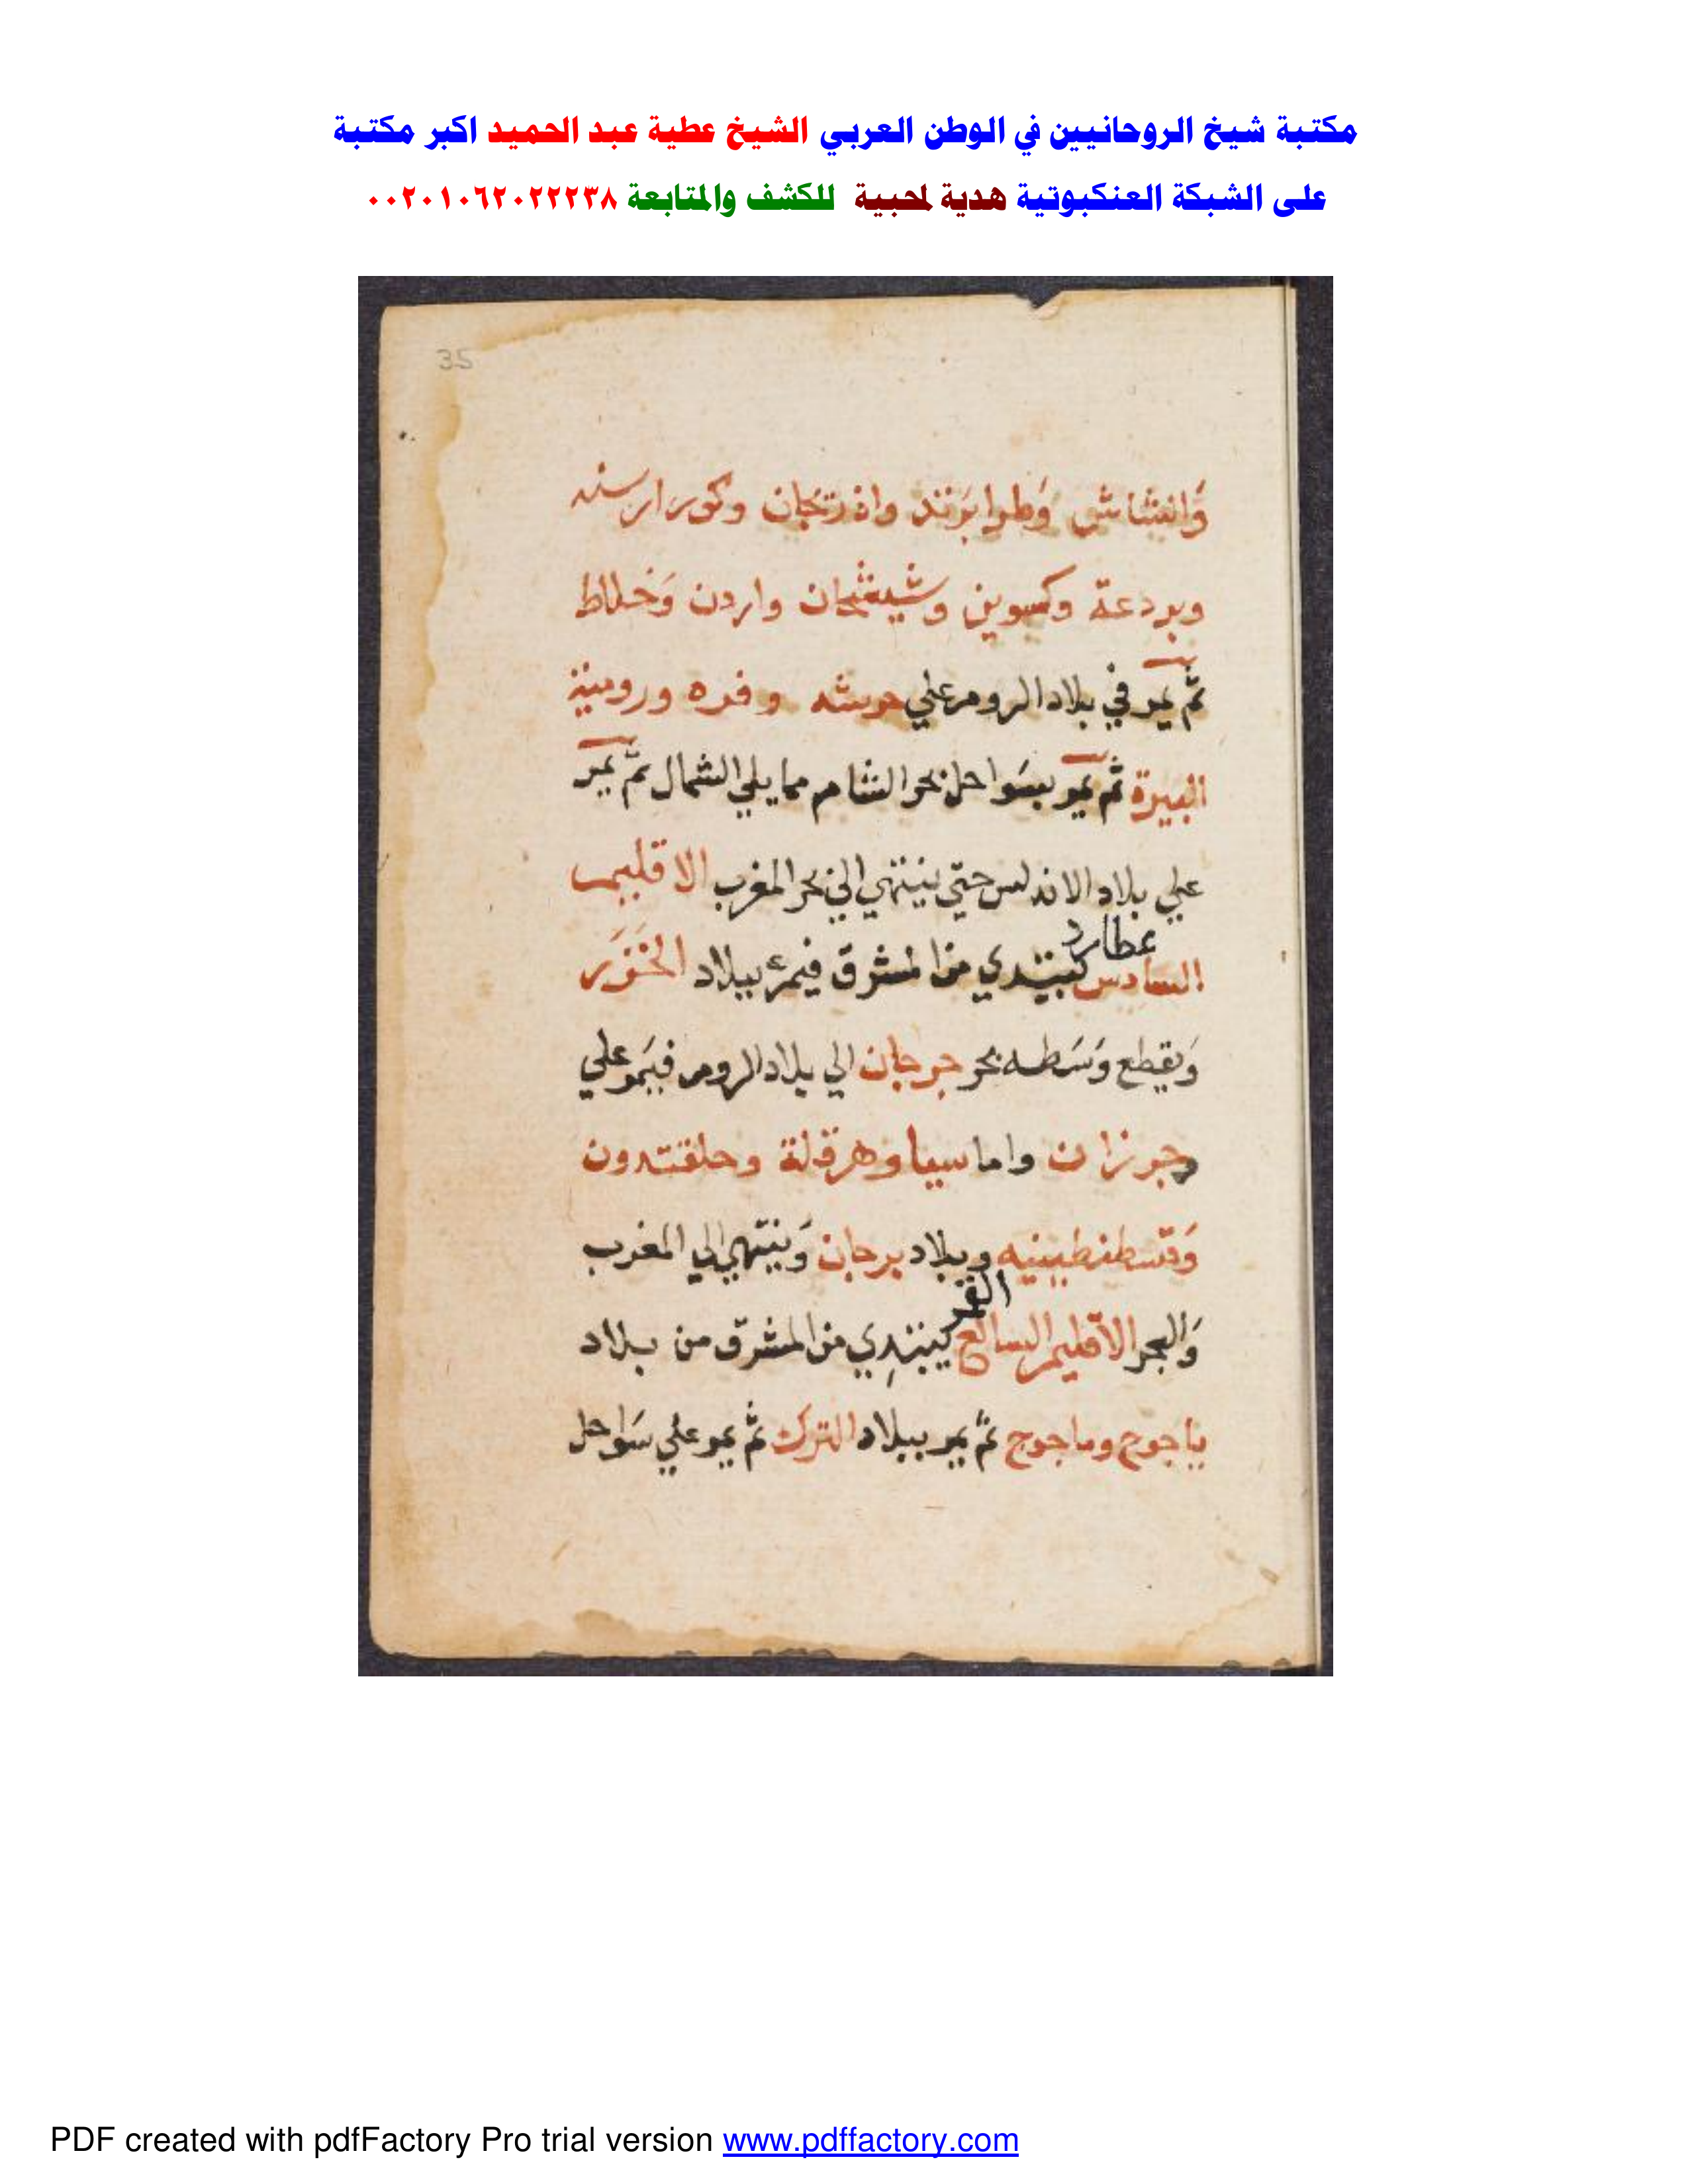 مكتبة شيخ الروحانيين في الوطن العربي الشيخ عطية عبد الحميد اكبر مكتبة
على الشبكة العنكبوتية هدية لمحبية للكشف والمتابعة ٠٠٢٠١٠٦٢٠٢٢٢٣٨
35
وطرابزند واذربجان وكور
وبردعة واردن وخلاط
ثم يمر في بلاد الروم علي حرشنه وقره ورومية
ثم يمر بسواحل بحر الشام مما يلي الشمال ثم يمر
علي بلاد الاندلس حتي ينتهي الي بحر المغرب الاقليم
عطارد
السادس يبتدي من المشرق فيمر ببلاد الخزر
ويقطع وسطه بحر جرجان الي بلاد الروم فيمر علي
جورزان واماسيا وهرقلة وحلقتدون
وقسطنطينيه وبلاد برجان وينتهي الي المغرب
القمر
والبحر الاقليم السابع يبتدي من المشرق من بلاد
ياجوج وماجوج ثم يمر ببلاد الترك ثم يمر علي سواحل
PDF created with pdfFactory Pro trial version www.pdffactory.com